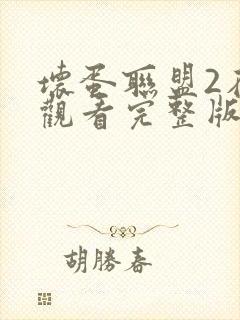 壞蛋聯盟2在
觀看完整版
胡勝春